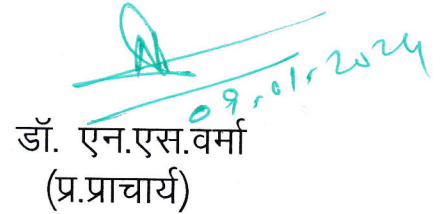 09.01.2024
डॉ. एन.एस.वर्मा
(प्र.प्राचार्य)